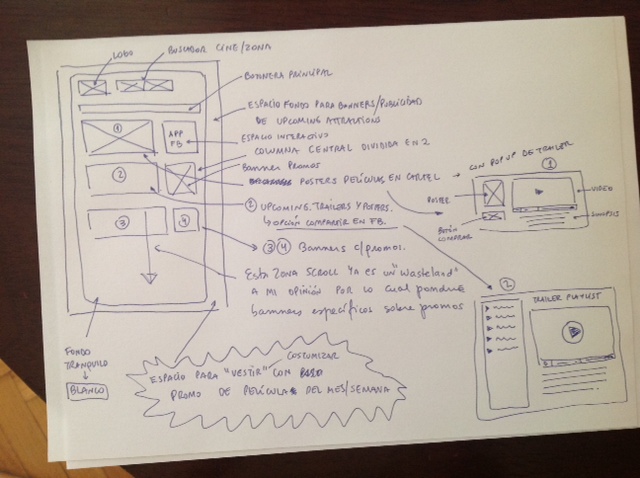 LOGO
BUSCADOR CINE/ZONA
BOTONERA PRINCIPAL
ESPACIO FONDO PARA BANNERS/PUBLICIDAD
DE UPCOMING ATTRACTIONS
1
APP
FB
ESPACIO INTERACTIVO
COLUMNA CENTRAL DIVIDIDA EN 2
Banner Promos
2
POSTERS PELÍCULAS EN CARTEL → CON POPUP DE TRAILER
1
POSTER
VIDEO
SINOPSIS
BOTÓN
COMPRAR
2 UPCOMING TRAILERS Y POSTERS.
↳ OPCIÓN COMPARTIR EN FB.
3
4
3 4 Banners c/promos.
Esta ZONA SCROLL YA ES UN "Wasteland"
A MI OPINIÓN POR LO CUAL pondría
banners específicos sobre promos
2
TRAILER PLAYLIST
FONDO
TRANQUILO
BLANCO
COSTUMIZAR
ESPACIO PARA "VESTIR" CON
PROMO DE PELÍCULAS DEL MES/SEMANA